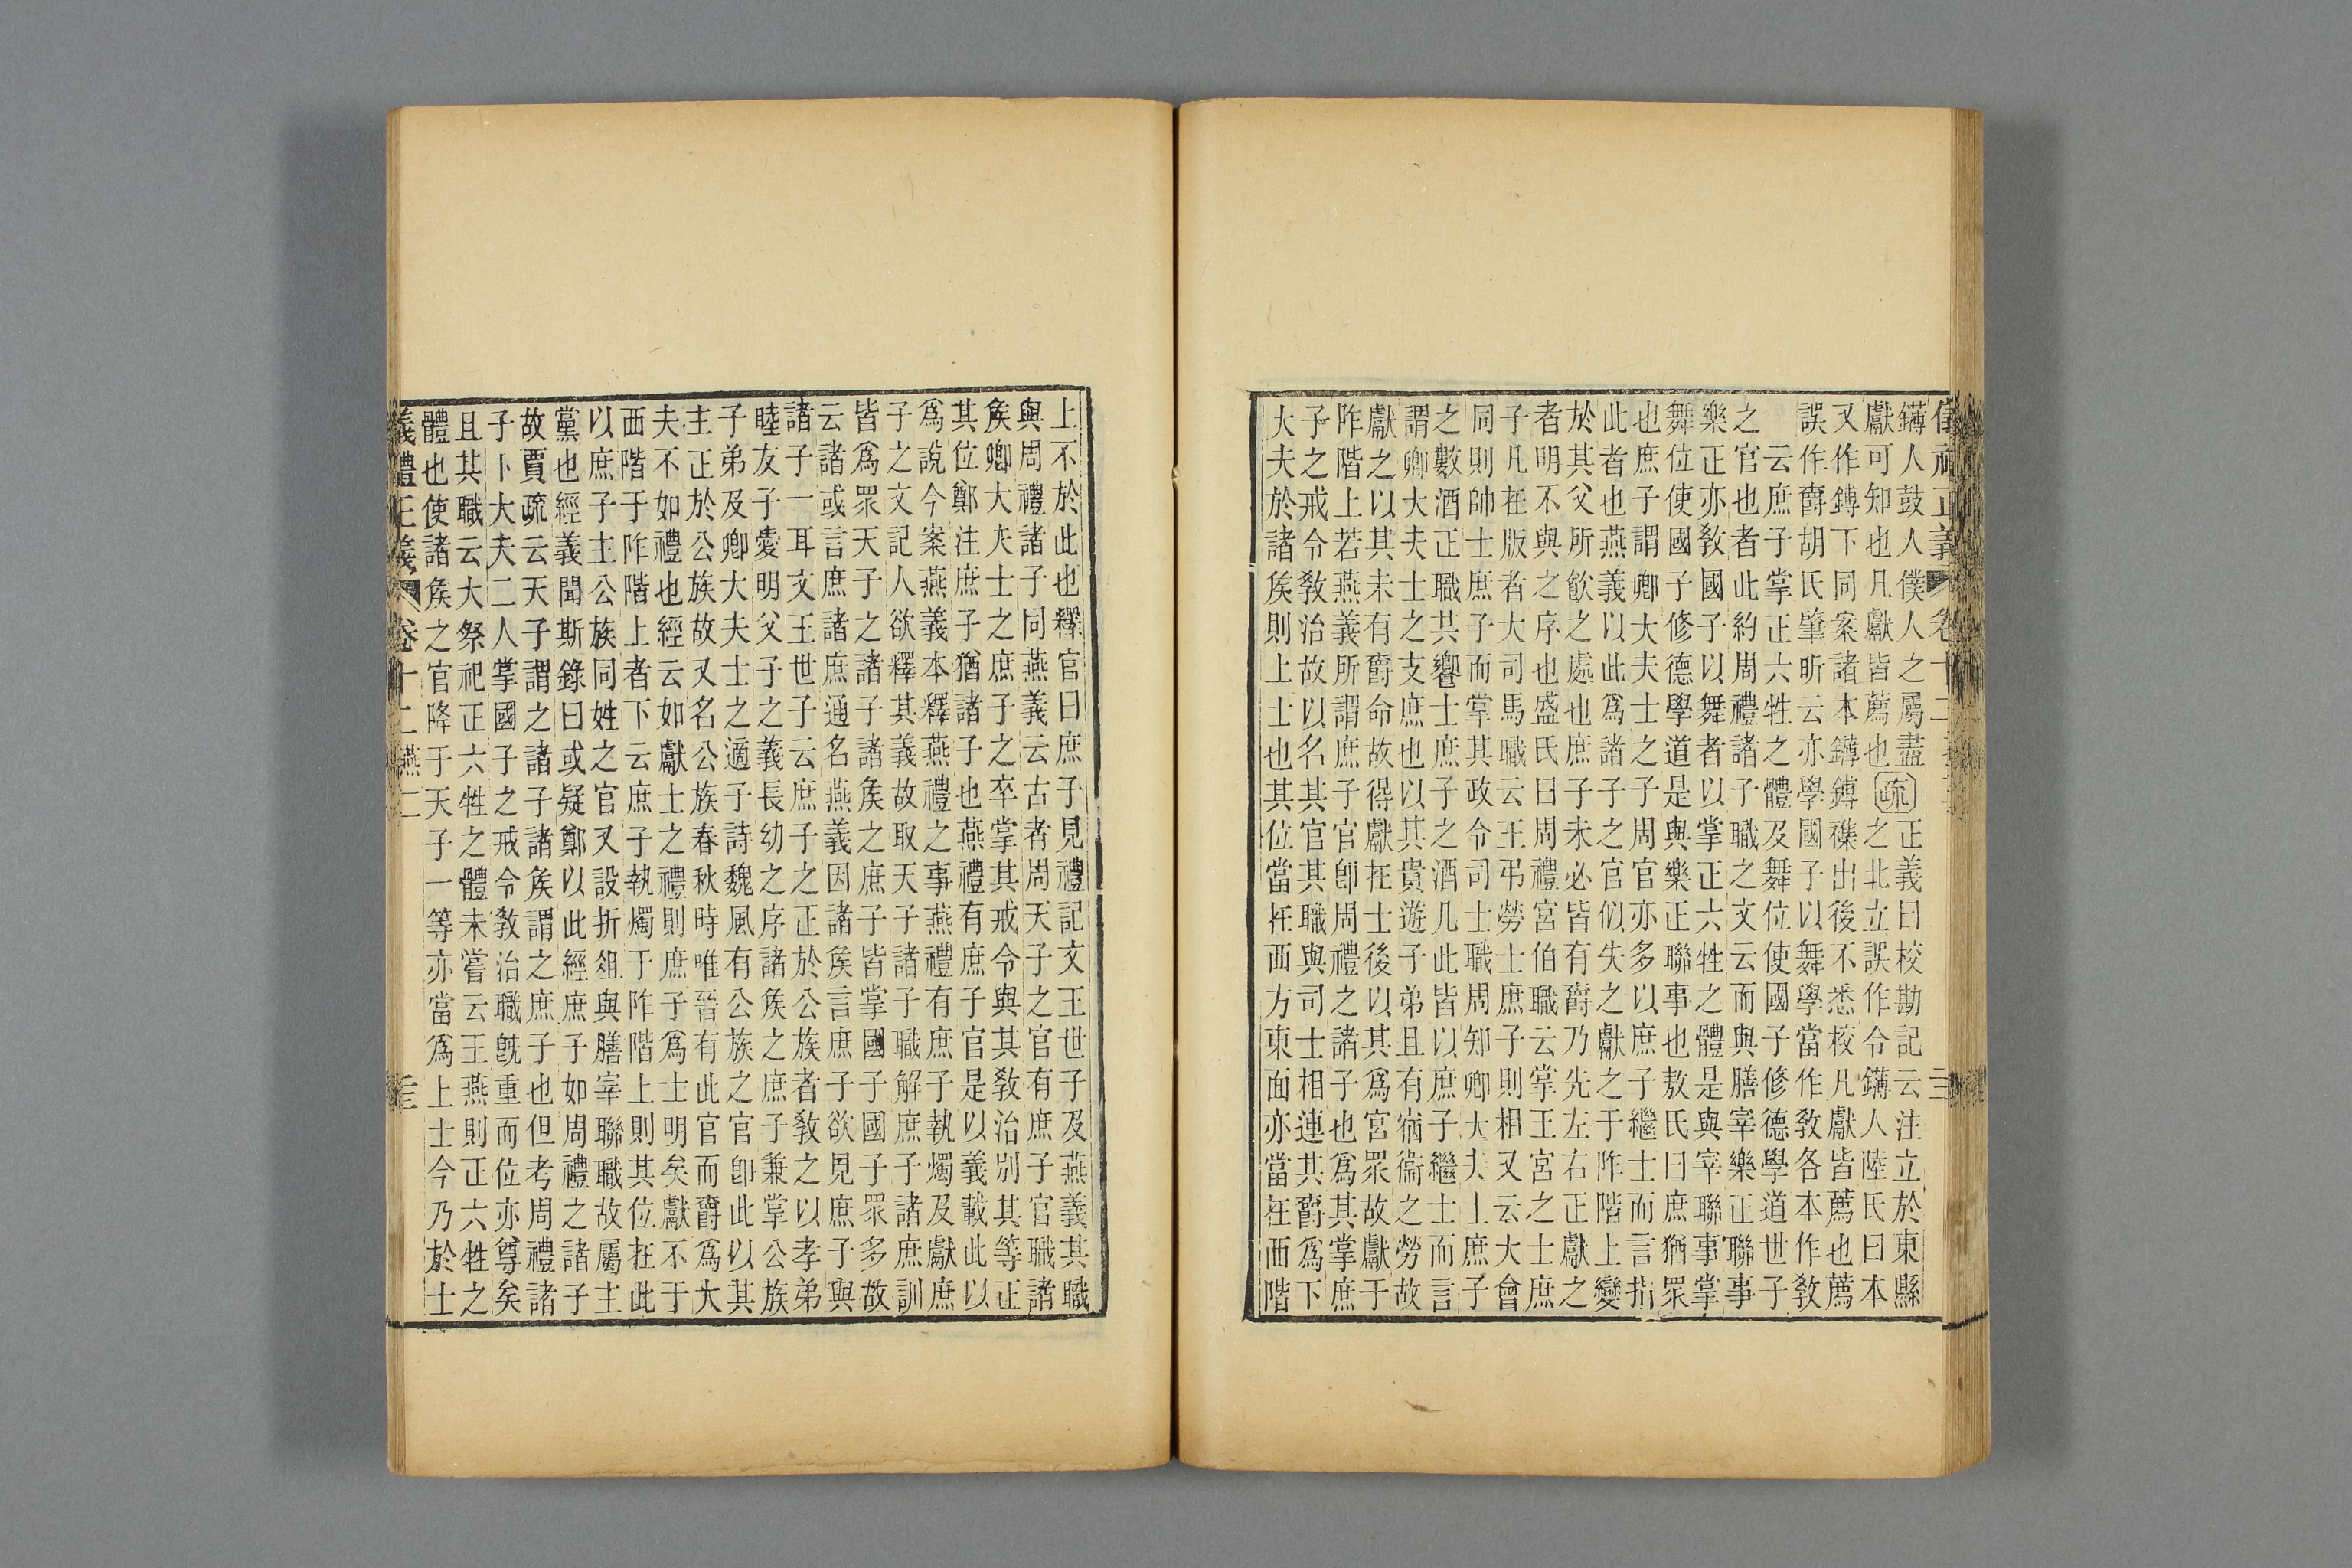 鑮人鼓人僕人之屬盡　正義曰校勘記云注立於東縣
獻可知也凡獻皆薦也疏之北立誤作令鑮人陸氏曰本
又作鎛下同案諸本鑮鎛襍出後不悉校凡獻皆薦也薦
誤作爵胡氏肇昕云亦學國子以舞學當作敎各本作敎
云庶子掌正六牲之體及舞位使國子修德學道世子
之官也者此約周禮諸子職之文云而與膳宰樂正聯事
樂正亦敎國子以舞者以掌正六牲之體是與宰聯事掌
舞位使國子修德學道是與樂正聯事也敖氏曰庶猶眾
也庶子謂卿大夫士之子周官亦多以庶子繼士而言指
此者也燕義以此爲諸子之官似失之獻之于阼階上變
於其父所飮之處也庶子未必皆有爵乃先左右正獻之
者明不與之序也盛氏曰周禮宮伯職云掌王宮之士庶
子凡在版者大司馬職云王弔勞士庶子則相又云大會
同則帥士庶子而掌其政令司士職周知卿大夫士庶子
之數酒正職共饗士庶子之酒凡此皆以庶子繼士而言
謂卿大夫士之支庶也以其貴遊子弟且有宿衞之勞故
獻之以其未有爵命故得獻在士後以其爲宮眾故獻于
阼階上若燕義所謂庶子官卽周禮之諸子也爲其掌庶
子之戒令敎治故以名其官其職與司士相連其爵爲下
大夫於諸矦則上士也其位當在西方東面亦當在西階
上不於此也釋官曰庶子見禮記文王世子及燕義其職
與周禮諸子同燕義云古者周天子之官有庶子官職諸
矦卿大夫士之庶子之卒掌其戒令與其敎治別其等正
其位鄭注庶子猶諸子也燕禮有庶子官是以義載此以
爲說今案燕義本釋燕禮之事燕禮有庶子執燭及獻庶
子之文記人欲釋其義故取天子諸子職解庶子諸庶訓
皆爲眾天子之諸子諸矦之庶子皆掌國子國子眾多故
云諸或言庶諸庶通名燕義因諸矦言庶子欲見庶子與
諸子一耳文王世子云庶子之正於公族者敎之以孝弟
睦友子愛明父子之義長幼之序諸矦之庶子兼掌公族
子弟及卿大夫士之適子詩魏風有公族之官卽此以其
主正於公族故又名公族春秋時唯晉有此官而爵爲大
夫不如禮也經云如獻士之禮則庶子爲士明矣獻不于
西階于阼階上者下云庶子執燭于阼階上則其位在此
以庶子主公族同姓之官又設折俎與膳宰聯職故屬主
黨也經義聞斯錄曰或疑鄭以此經庶子如周禮之諸子
故賈疏云天子謂之諸子諸矦謂之庶子也但考周禮諸
子下大夫二人掌國子之戒令敎治職旣重而位亦尊矣
且其職云大祭祀正六牲之體未嘗云王燕則正六牲之
體也使諸矦之官降于天子一等亦當爲上士今乃於士
儀禮正義 卷十二 燕二